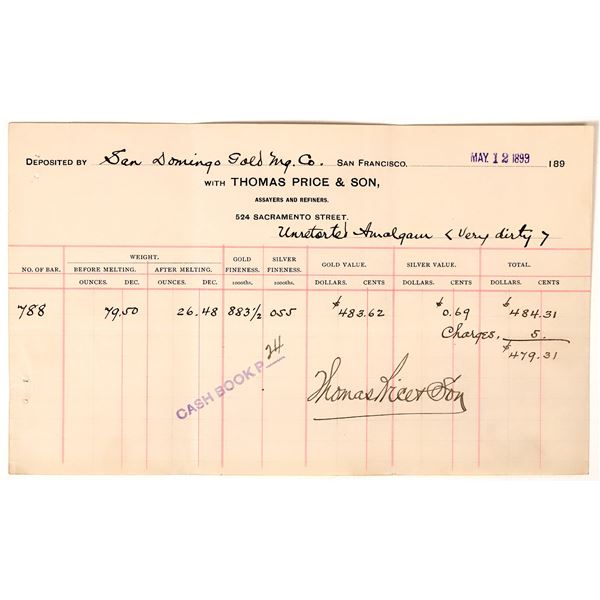 DEPOSITED BY San Domingo Gold Mg. Co. SAN FRANCISCO, MAY 12 1899 189
WITH THOMAS PRICE & SON,
ASSAYERS AND REFINERS.
524 SACRAMENTO STREET.
Unretorted Amalgam < Very dirty >
NO. OF BAR. WEIGHT. GOLD FINENESS. SILVER FINENESS. GOLD VALUE. SILVER VALUE. TOTAL.
BEFORE MELTING. AFTER MELTING.
OUNCES. DEC. OUNCES. DEC. 1000ths. 1000ths. DOLLARS. CENTS DOLLARS. CENTS DOLLARS. CENTS
788 79.50 26.48 883 1/2 055 $483.62 $0.69 $484.31
Charges, 5.
$479.31
CASH BOOK P 24
Thomas Price & Son